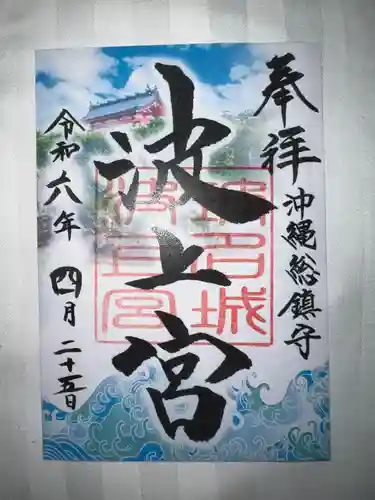 奉拝
沖縄総鎮守
波上宮
令和六年
四月二十五日